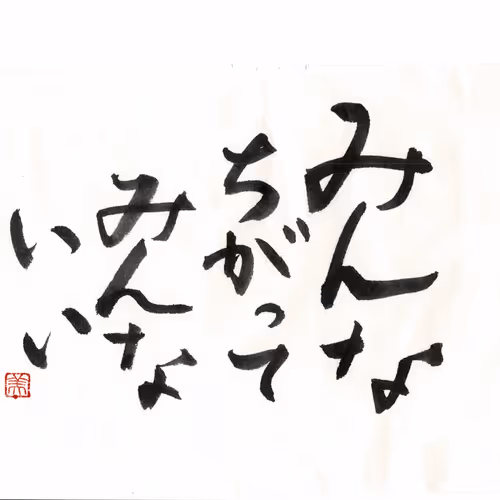 みんな
ちがって
みんな
いい